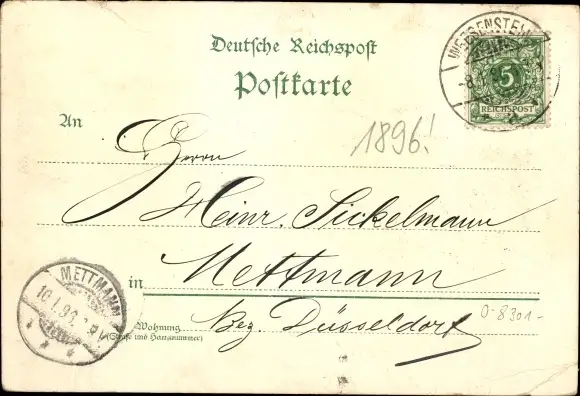 Deutsche Reichspost
Postkarte
WEESENSTEIN
5
REICHSPOST
An
1896!
Herrn
Heinr. Sickelmann
in Mettmann
METTMANN
10.1.96.
Wohnung
(Straße und Hausnummer)
Bez. Düsseldorf
0-8301-